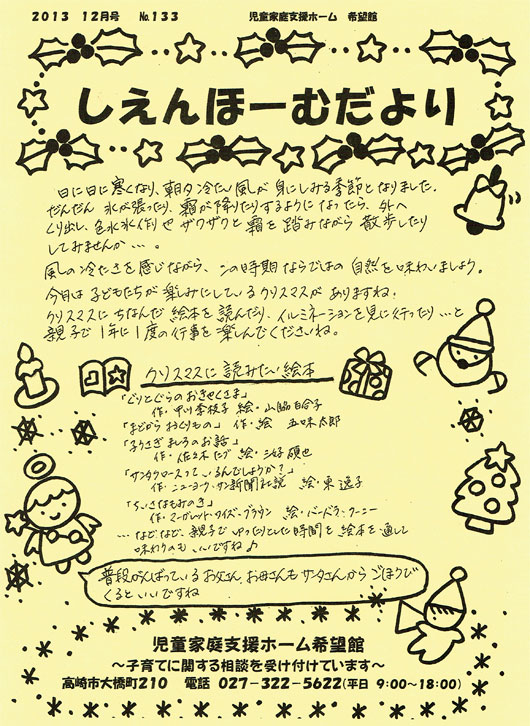 2013 12月号 No.133 児童家庭支援ホーム 希望館
しえんほーむだより
日に日に寒くなり、朝夕冷たい風が身にしみる季節となりました。
だんだん 氷が張ったり、霜が降りたりするようになったら、外へ
くり出し、色水氷作りや ザクザクと霜を踏みながら散歩したり
してみませんか…。
風の冷たさを感じながら、この時期ならではの自然を味わいましょう。
今月は子どもたちが楽しみにしているクリスマスがありますね!
クリスマスにちなんだ絵本を読んだり、イルミネーションを見に行ったり…と
親子で1年に1度の行事を楽しんでくださいね。
クリスマスに読みたい絵本
「ぐりとぐらのおきゃくさま」
作・中川李枝子 絵・山脇百合子
「まどからおくりもの」 作・絵 五味太郎
「子うさぎましろのお話」
作・佐々木たづ 絵・三好碩也
「サンタクロースっているんでしょうか?」
作・ニューヨーク・サン新聞社説 絵・東逸子
「ちいさなもみのき」
作・マーガレット・ワイズ・ブラウン 絵・バーバラ・クーニー
…などなど、親子でゆったりとした時間を絵本を通して
味わうのも、いいですね♪
普段がんばっているお父さん、お母さんもサンタさんからごほうびが
くるといいですね
児童家庭支援ホーム希望館
~子育てに関する相談を受け付けています~
高崎市大橋町210 電話 027-322-5622(平日 9:00~18:00)